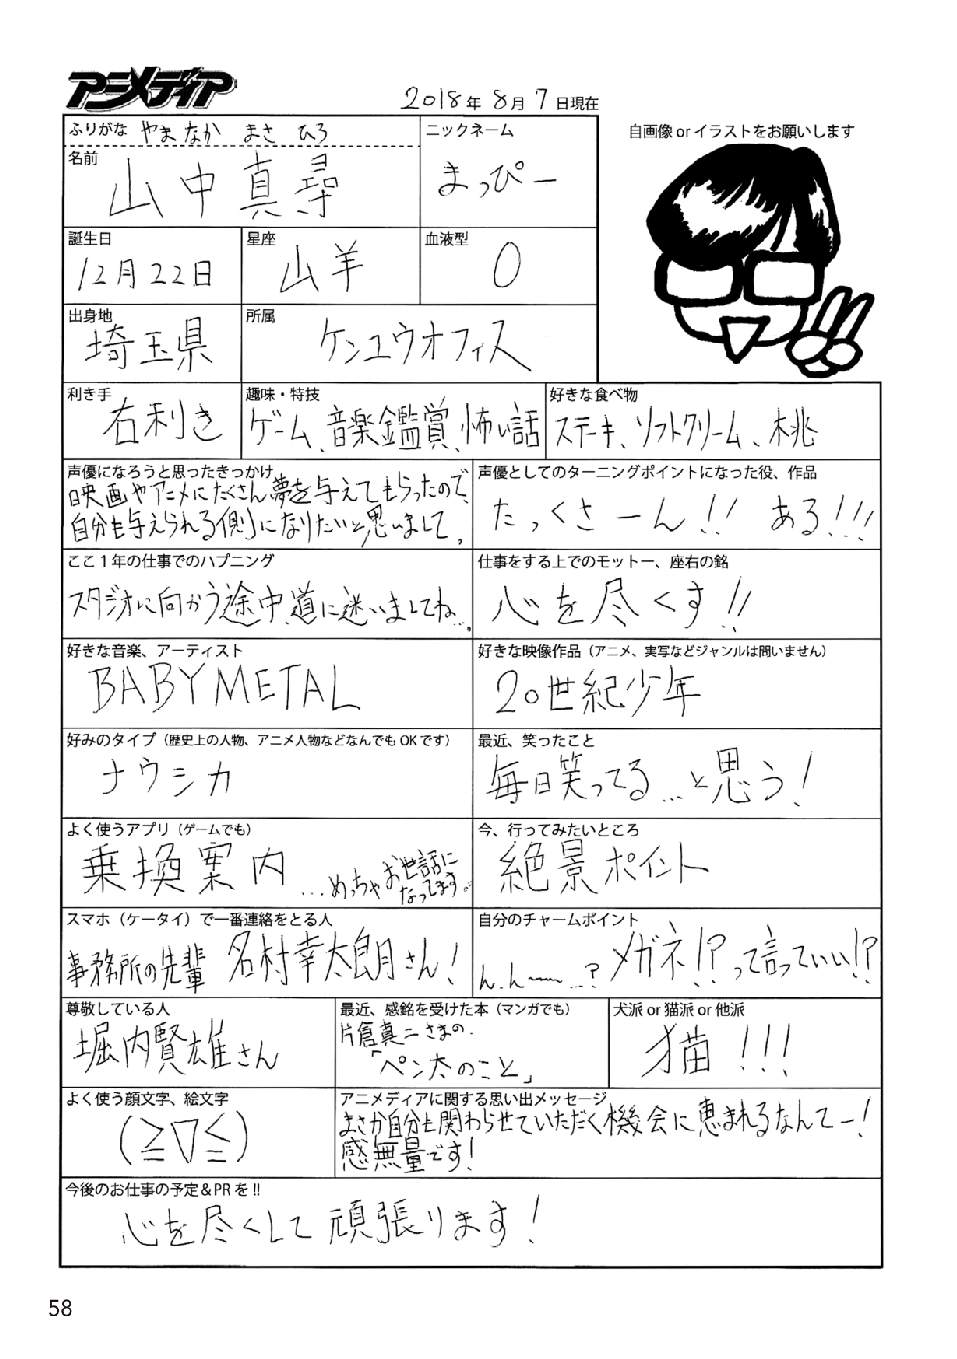 アニメディア
2018年 8月 7日現在
ふりがな やま なか まさ ひろ
名前
山中 真尋
ニックネーム
まっぴー
自画像 or イラストをお願いします
誕生日
12月22日
星座
山羊
血液型
O
出身地
埼玉県
所属
ケンユウオフィス
利き手
右利き
趣味・特技
ゲーム、音楽鑑賞、怖い話
好きな食べ物
ステーキ、ソフトクリーム、桃
声優になろうと思ったきっかけ
映画やアニメにたくさん夢を与えてもらったので、
自分も与えられる側になりたいと思いまして。
声優としてのターニングポイントになった役、作品
たっくさーん!! ある!!!
ここ1年の仕事でのハプニング
スタジオに向かう途中、道に迷いましてね…。
仕事をする上でのモットー、座右の銘
心を尽くす!!
好きな音楽、アーティスト
BABYMETAL
好きな映像作品(アニメ、実写などジャンルは問いません)
20世紀少年
好みのタイプ(歴史上の人物、アニメ人物などなんでもOKです)
ナウシカ
最近、笑ったこと
毎日笑ってる…と思う!
よく使うアプリ(ゲームでも)
乗換案内 …めっちゃお世話に
なってます。
今、行ってみたいところ
絶景ポイント
スマホ(ケータイ)で一番連絡をとる人
事務所の先輩 名村幸太朗さん!
自分のチャームポイント
ん、ん〜…? メガネ!?って言っていい!?
尊敬している人
堀内賢雄さん
最近、感銘を受けた本(マンガでも)
片倉真二さまの、
「ペン太のこと」
犬派 or 猫派 or 他派
猫!!!
よく使う顔文字、絵文字
(≧▽≦)
アニメディアに関する思い出メッセージ
まさか自分も関わらせていただく機会に恵まれるなんてー!
感無量です!
今後のお仕事の予定&PRを!!
心を尽くして頑張ります!
58